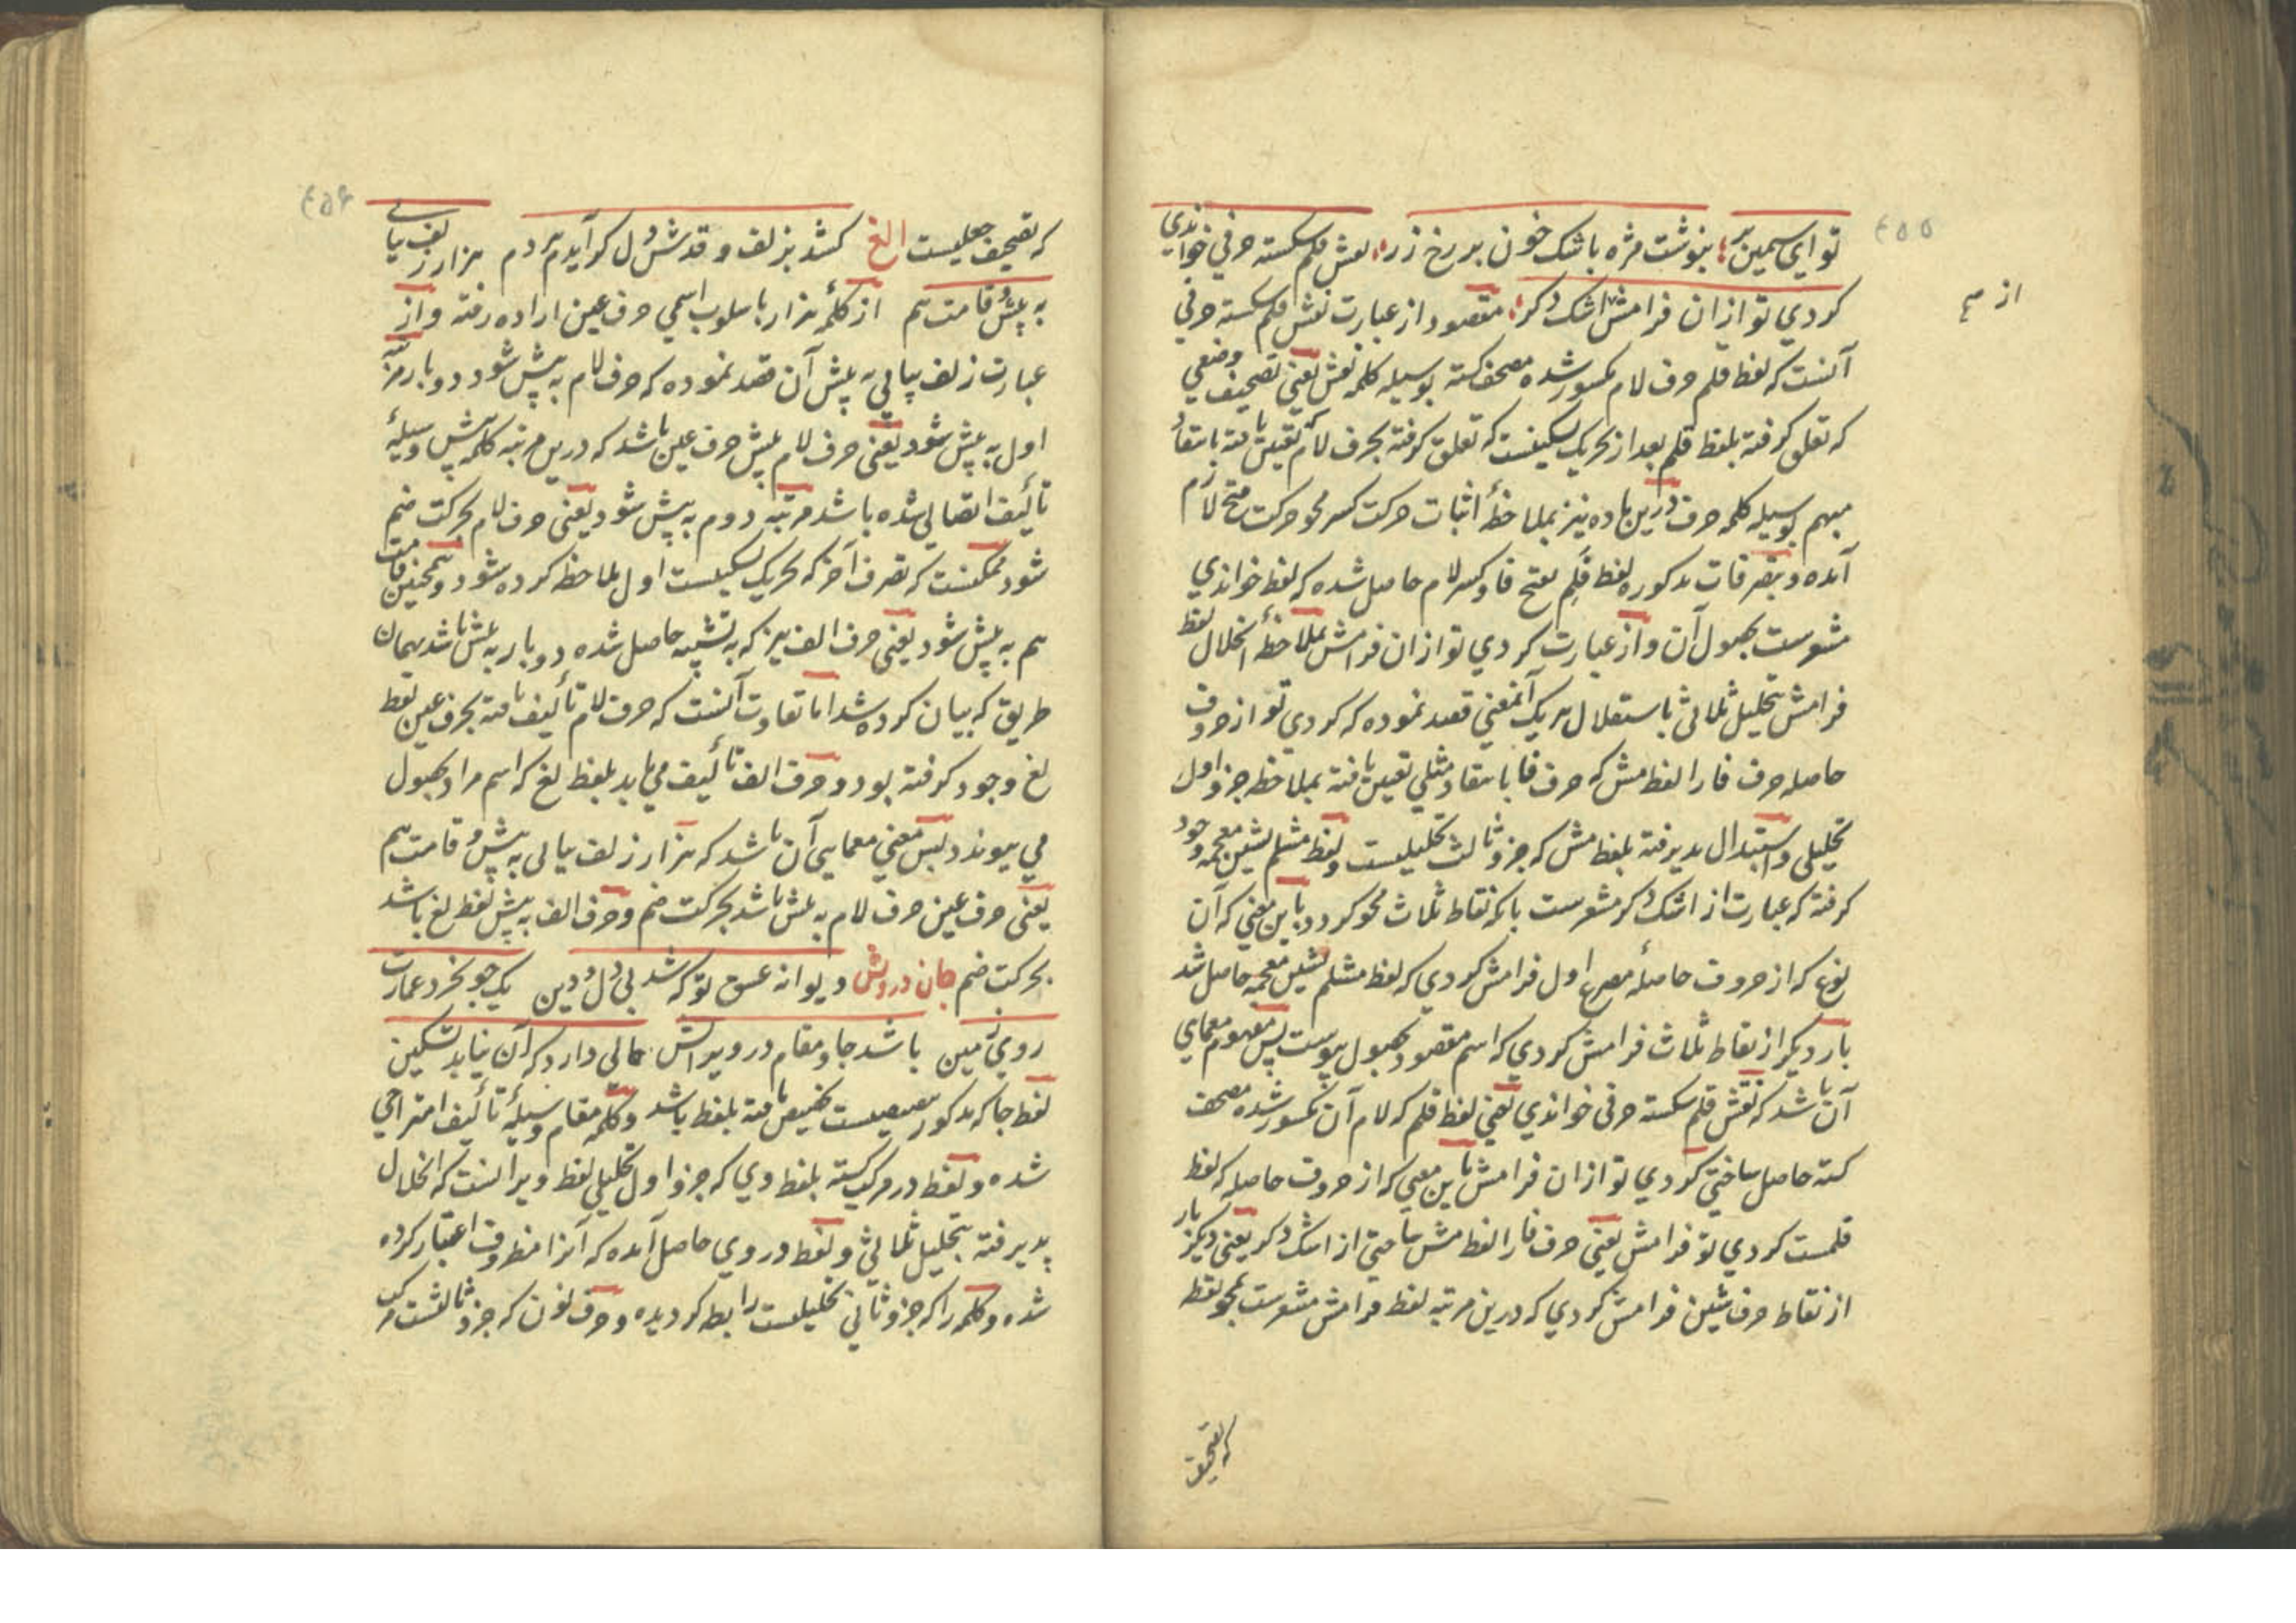 ٤٥٥
تو ای سیمین بر بنوشت مژه باشک خون بر رخ زر نقش قلم شکسته حرفی خواندی
کردی تو ازان فرامش اشک دکر مقصود از عبارت نقش قلم شکسته حرفی
از
آنست که لفظ قلم حرف لام مکسور شده مصحف کشته بوسیله کلمه نقش یعنی تصحیف وضعی
که تعلق کرفته بلفظ قلم بعد از تحریک تسکینست که تعلق کرفته بحرف لام که تعیین یافته بانتقاد
مبهم بوسیله کلمه حرف درین ماده نیز بملاحظهٔ اثبات حرکت کسر محو حرکت فتح لازم
آمده و بتصرفات مذکوره لفظ فلم بفتح فا و کسر لام حاصل شده که لفظ خواندی
مشعرست بحصول آن و از عبارت کردی تو ازان فرامش بملاحظهٔ انحلال لفظ
فرامش بتحلیل ثلاثی باستقلال هریک آنمعنی قصد نموده که کردی تو از حروف
حاصله حرف فا را لفظ مش که حرف فا بانتقاد مثلی تعیین یافته بملاحظه جزو اول
تحلیلی و استبدال پذیرفته بلفظ مش که جزو ثالث تحلیلیست و لفظ مشلم بشین معجمه وجود
کرفته که عبارت از اشک دکر مشعرست بانکه نقاط ثلاث محو کردد باین معنی که آن
نوع که از حروف حاصلهٔ مصرع اول فرامش کردی که لفظ مشلم بشین معجمه حاصل شد
بار دیکر از نقاط ثلاث فرامش کردی که اسم مقصود بحصول پیوست پس مفهوم معمایی
آن باشد که نقش قلم شکسته حرفی خواندی یعنی لفظ قلم که لام آن مکسور شده مصحف
کشته حاصل ساختی کردی تو ازان فرامش باین معنی که از حروف حاصله که لفظ
فلمست کردی تو فرامش یعنی حرف فا را لفظ مش ساختی از اشک دکر یعنی دیکر بار
از نقاط حرف شین فرامش کردی که درین مرتبه لفظ فرامش مشعرست بمحو نقط
که تصحیف
٤٥٦
که تصحیف جعلیست الغ کشد بزلف و قدش دل کر آیدم هر دم هزار زلف بپای
به پیش قامت هم از کلمهٔ هزار باسلوب اسمی حرف عین اراده رفته و از
عبارت زلف بپایی به پیش آن قصد نموده که حرف لام به پیش شود دو بار مرتبه
اول به پیش شود یعنی حرف لام پیش حرف عین باشد که درین مرتبه کلمه پیش وسیلهٔ
تألیف اتصالی شده باشد مرتبه دوم به پیش شود یعنی حرف لام بحرکت ضم
شود ممکنست که تصرف آخر که تحریک تسکینست اول ملاحظه کرده شود و همچنین قامت
هم به پیش شود یعنی حرف الف نیز که به تشبیه حاصل شده دو بار به پیش باشد بهمان
طریق که بیان کرده شد اما تفاوت آنست که حرف لام تألیف یافته بحرف عین لفظ
لغ وجود کرفته بود و حرف الف تألیف می یابد بلفظ لغ که اسم مراد بحصول
می پیوندد پس معنی معمایی آن باشد که هزار زلف بپای به پیش قامت هم
یعنی حرف عین حرف لام به پیش باشد بحرکت ضم و حرف الف به پیش لفظ لغ باشد
بحرکت ضم جان درویش دیوانه عشق تو که شد بی دل و دین یک جو نخرد عمارت
روی زمین باشد جا و مقام در ویرانش حالی دارد که آن نیابد تسکین
لفظ جا که مذکور تنصیصیست تخصیص یافته بلفظ باشد و کلمه مقام وسیلهٔ تألیف امتزاجی
شده و لفظ در مرکب کشته بلفظ وی که جزو اول تحلیلی لفظ ویرانست که انحلال
پذیرفته بتحلیل ثلاثی و لفظ در وی حاصل آمده که آنرا مظروف اعتبار کرده
شده و کلمه را که جزو ثانی تحلیلیست رابطه کردیده و حرف نون که جزو ثالثست مرکب